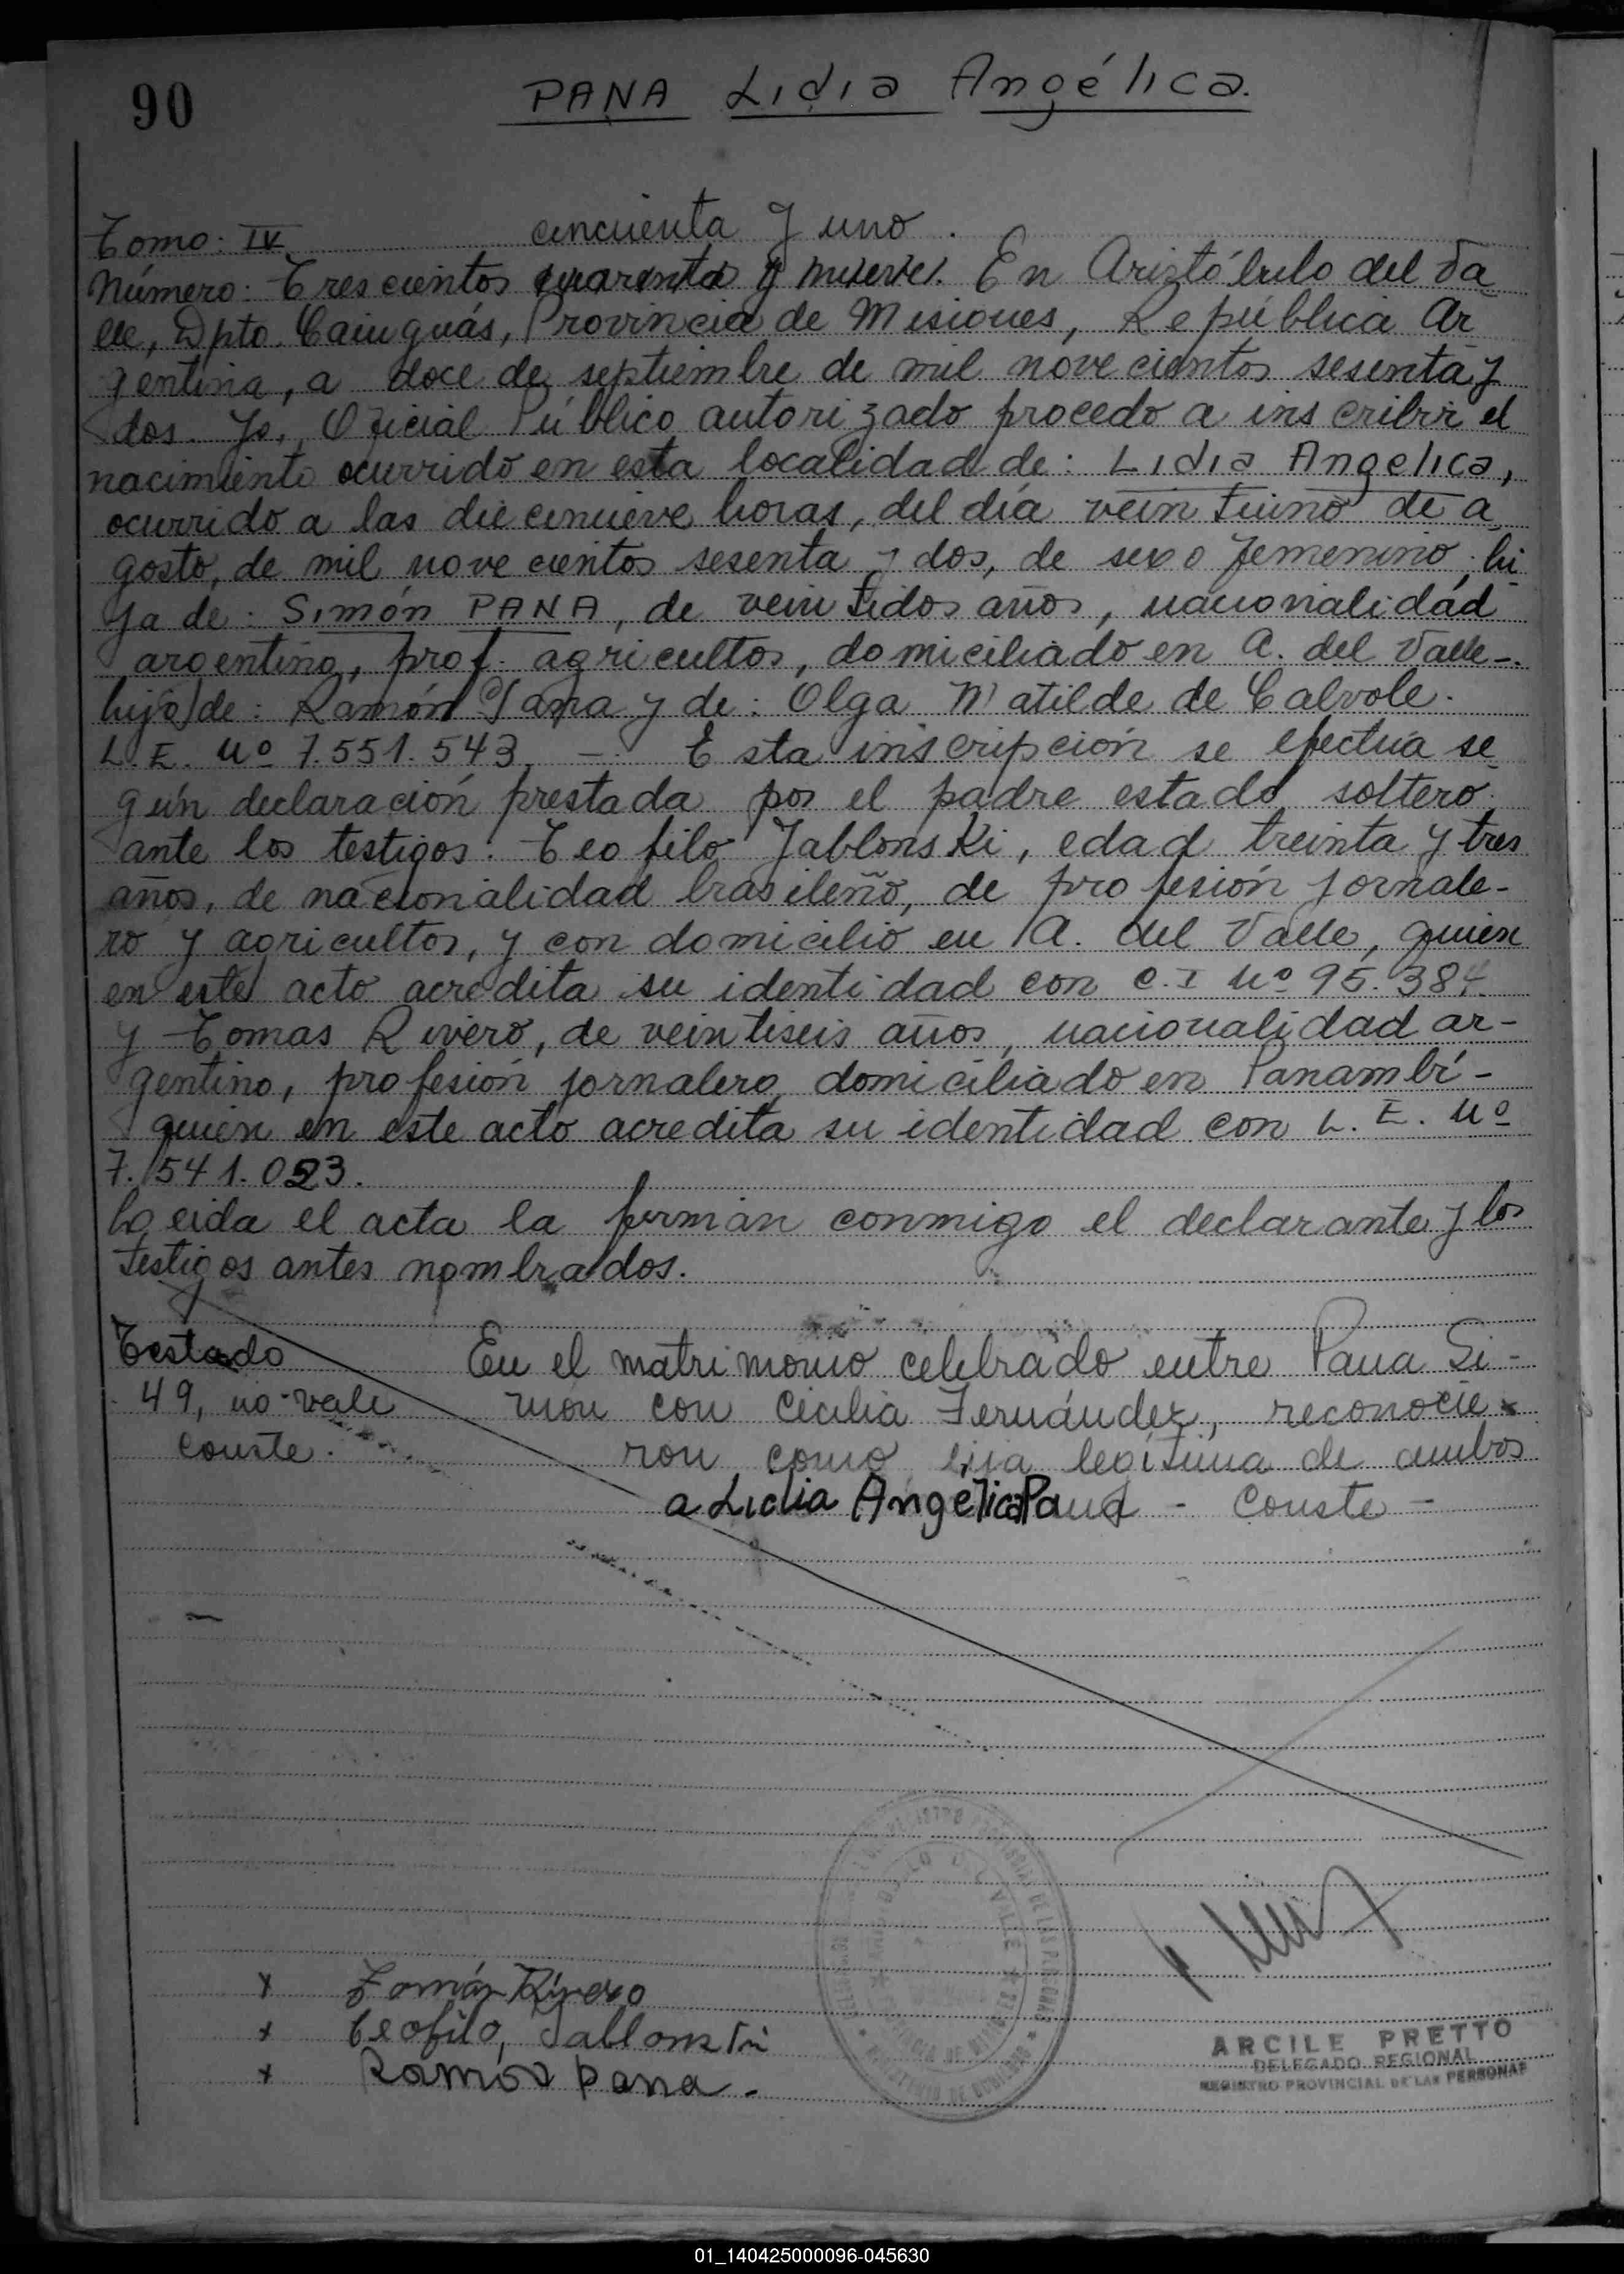 90
PANA Lidia Angélica.
cincuenta y uno.
Tomo: IV
Número: Trescientos cuarenta y nueve. En Aristóbulo del Va-
lle, Dpto. Cainguás, Provincia de Misiones, República Ar
gentina, a doce de septiembre de mil novecientos sesenta y
dos. Yo, Oficial Público autorizado procedo a inscribir el
nacimiento ocurrido en esta localidad de: Lidia Angelica,
ocurrido a las diecinueve horas, del día veintiuno de a
gosto, de mil novecientos sesenta y dos, de sexo femenino, hi
ja de: Simón PANA, de veintidos años, nacionalidad
argentino, prof. agricultor, domiciliado en A. del Valle-.
hijo de: Ramón Pana y de: Olga Matilde de Calvole.
L.E. Nº 7.551.543. - Esta inscripción se efectúa se
gún declaración prestada por el padre estado soltero.
ante los testigos: Teofilo Jablonski, edad treinta y tres
años, de nacionalidad brasileño, de profesión jornale-
ro y agricultor, y con domicilio en A. del Valle, quien
en este acto acredita su identidad con C.I Nº 95.384.
y Tomas Rivero, de veintiseis años, nacionalidad ar-
gentino, profesión jornalero, domiciliado en Panambí-
quien en este acto acredita su identidad con L.E. Nº
7.541.023.
Leida el acta la firman conmigo el declarante y los
testigos antes nombrados.
Testado
49, no-vale
conste.
En el matrimonio celebrado entre Pana Si-
món con Cecilia Fernández, reconocie
ron como hija legítima de ambos
a Lidia Angélica Pana - Conste -
x Tomás Rivero
x Teofilo, Jablonski
x Ramón Pana.
ARCILE PRETTO
DELEGADO REGIONAL
REGISTRO PROVINCIAL DE LAS PERSONAS
01_140425000096-045630